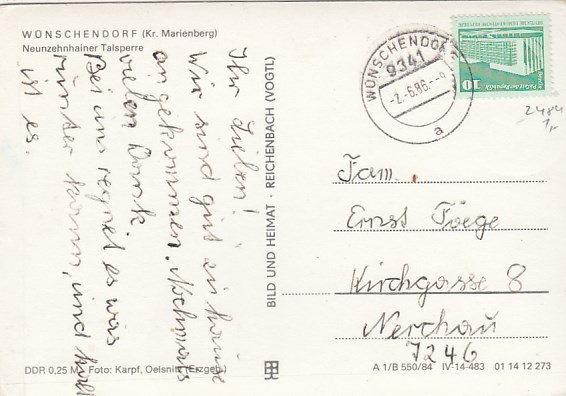 WÜNSCHENDORF (Kr. Marienberg)
Neunzehnhainer Talsperre
Ihr Lieben!
Wir sind gut zu hause
angekommen. Nochmals
vielen Dank.
Bei uns regnet es was
runter kann, und kalt
ist es.
BILD UND HEIMAT · REICHENBACH (VOGTL)
WÜNSCHENDORF
9341
-2.-6.86.
a
10
2484
Fam.
Ernst Föege
Kirchgasse 8
Nerchau
7246
DDR 0,25 M Foto: Karpf, Oelsnitz (Erzgeb.)
A 1/B 550/84 IV-14-483 01 14 12 273